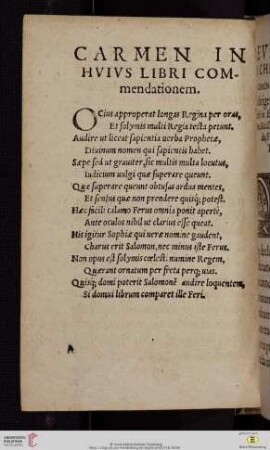 CARMEN IN
HVIVS LIBRI COM-
mendationem.
OCius approperat longas Regina per oras,
Et solymis multi Regia tecta petunt.
Audire ut liceat sapientis uerba Prophetæ,
Diuinum nomen qui sapientis habet.
Sæpe sed ut grauiter, sic multis multa locutus,
Iudicium uulgi quæ superare queunt.
Quæ superare queunt obtusas ardua mentes,
Et sensus quæ non prendere quisq; potest.
Hæc facili calamo Ferus omnis ponit apertè,
Ante oculos nihil ut clarius esse queat.
His igitur Sophiæ qui ueræ nomine gaudent,
Charus erit Salomon, nec minus iste Ferus.
Non opus est solymis cœlesti numine Regem,
Quærant ornatum per freta perq; uias.
Quisq; domi poterit Salomonē audire loquentem,
Si domui librum comparet ille Feri.